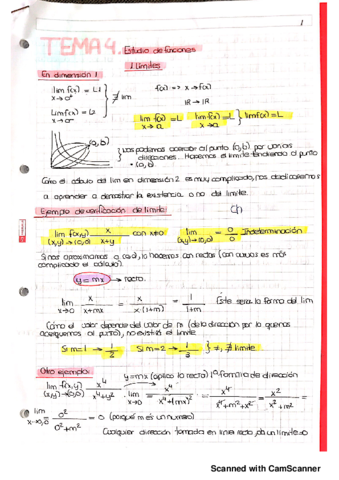 1
TEMA 4. Estudio de funciones
1 Límites
En dimensión 1
lim f(x) = L1
x→a⁺
lim f(x) = L2
x→a⁻
∄ lim
f(x) => x → f(x)
ℝ → ℝ
lim f(x) = L
x→a
lim f(x) = L
x→a
lim f(x) = L
(a,b)
Nos podemos acercar al punto (a,b) por varias
direcciones. Hacemos el límite tendiendo al punto
(a,b)
Como el cálculo del lim en dimensión 2 es muy complicado, nos dedicaremos
a aprender a demostrar la existencia o no del límite.
Ejemplo de verificación de límite
lim f(x,y) x/(x+y) con x≠0
(x,y)→(0,0)
lim = 0/0 Indeterminación
(x,y)→(0,0)
Si nos aproximamos a (0,0), lo hacemos con rectas (con curvas es más
complicado el cálculo).
y=mx → recta.
lim x/(x+mx) = x/(x(1+m)) = 1/(1+m) Este será la forma del lim
x→0
Como el valor depende del valor de m (de la dirección por la que nos
acerquemos al punto), no existirá el límite
Si m=1 → 1/2 Si m=2 → 1/3 } ≠, ∄ límite
Otro ejemplo:
y=mx (aplico la recta) 1º familia de dirección
lim f(x,y) x⁴/(x⁴+y²) · lim x⁴/(x⁴+(mx)²) = x⁴/(x⁴+m²+x²) = x²/(x²+m²) =
(x,y)→(0,0) x→0
lim 0²/(0²+m²) = 0 (porque m es un número)
x→0
Cualquier dirección tomada en línea recta da un límite=0
Scanned with CamScanner